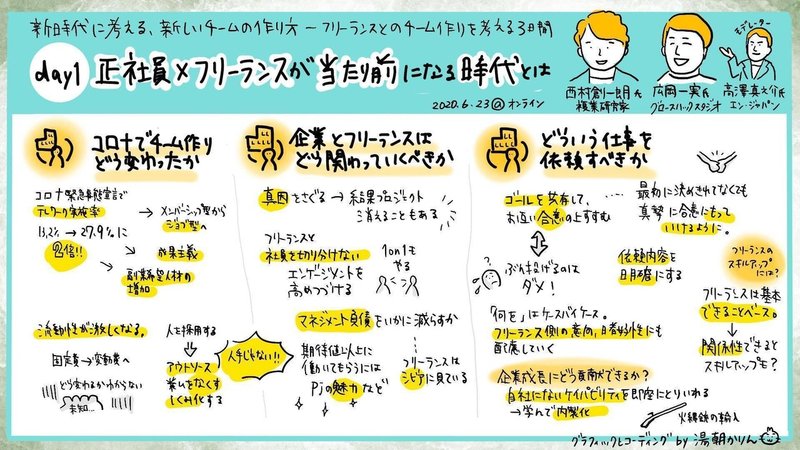 新時代に考える、新しいチームの作り方 ― フリーランスとのチーム作りを考える3日間
day1 正社員×フリーランスが当たり前になる時代とは
2020.6.23@オンライン
西村創一朗氏
複業研究家
広岡一実氏
グロースハックスタジオ
モデレーター
高澤真之介氏
エン・ジャパン
コロナでチーム作り
どう変わったか
コロナ緊急事態宣言で
テレワーク実施率
13.2% → 27.9%に
2倍!!
→ メンバーシップ型から
ジョブ型へ
→ 成果主義
→ 副業希望人材の
増加
流動性が激しくなる。
固定費→変動費へ
どう変わるかわからない
未知…
人を採用する
↓
アウトソース
業ムをなくす
しくみ化する
企業とフリーランスは
どう関わっていくべきか
真因をさぐる → 結果プロジェクト
消えることもある
フリーランスと
社員を切り分けない
エンゲージメントを
高めつづける
1on1も
やる
マネジメント負債をいかに減らすか
人手じゃない!!
期待値以上に
働いてもらうには
PJの魅力など
フリーランスは
シビアに見ている
どういう仕事を
依頼すべきか
ゴールを共有して、
お互い合意の上すすむ
ぶん投げるのは
ダメ!
最初に決めきれてなくても
真摯に合意にもって
いけるように。
依頼内容を
明確にする
「何を」はケースバイケース。
フリーランス側の意向、日者好性にも
配慮していく
企業成長にどう貢献ができるか?
自社にないケイパビリティを即座にとりいれる
→学んで内製化
フリーランスの
スキルアップ
には?
フリーランスは基本
できることベース。
↓
関係性できると
スキルアップも?
火縄銃の輸入
グラフィックレコーディング by 湯朝かりん